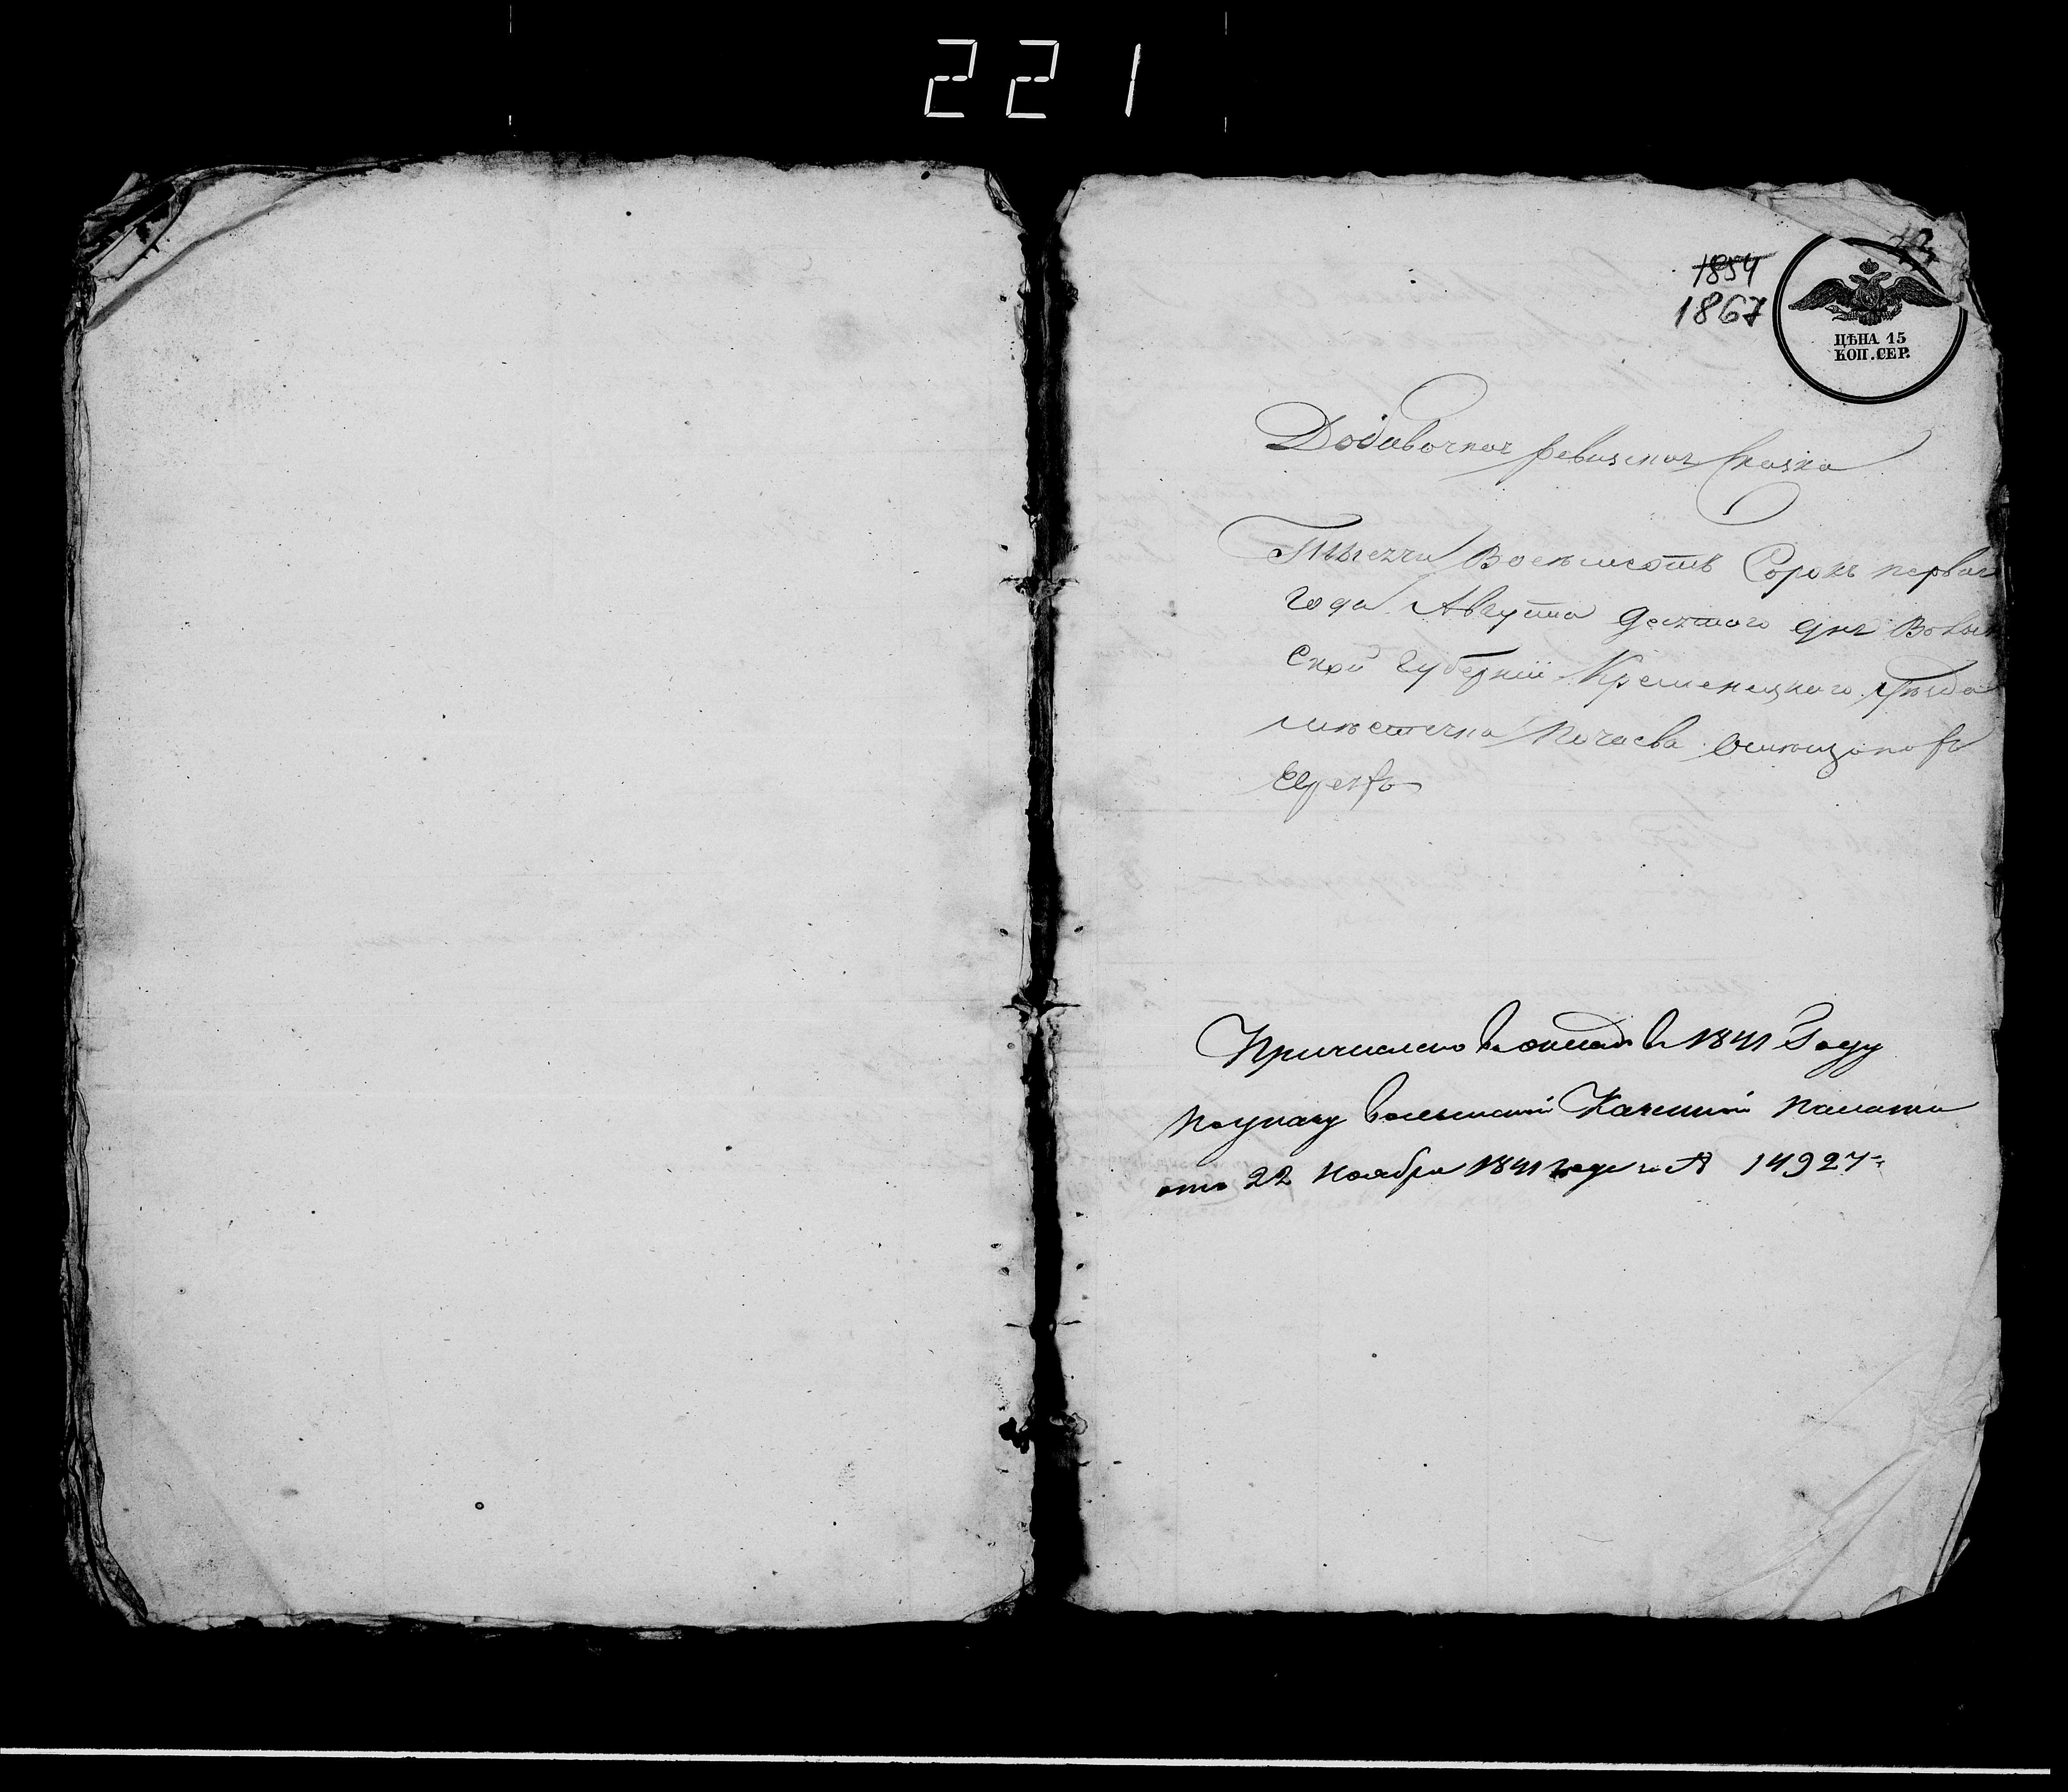 221
1854
1867
ЦѢНА 15
КОП. СЕР.
Добавочная ревизская Сказка
Тысяча Восемьсотъ Сорокъ перваг
года Августа десятого дня Волын
ской губерніи Кременецкого уѣзда
мѣстечка Почаева о
Еврея
Причислено въ окладъ въ 1841 Году
по указу волынской Казенной палаты
отъ 22 ноября 1841 года за № 14927